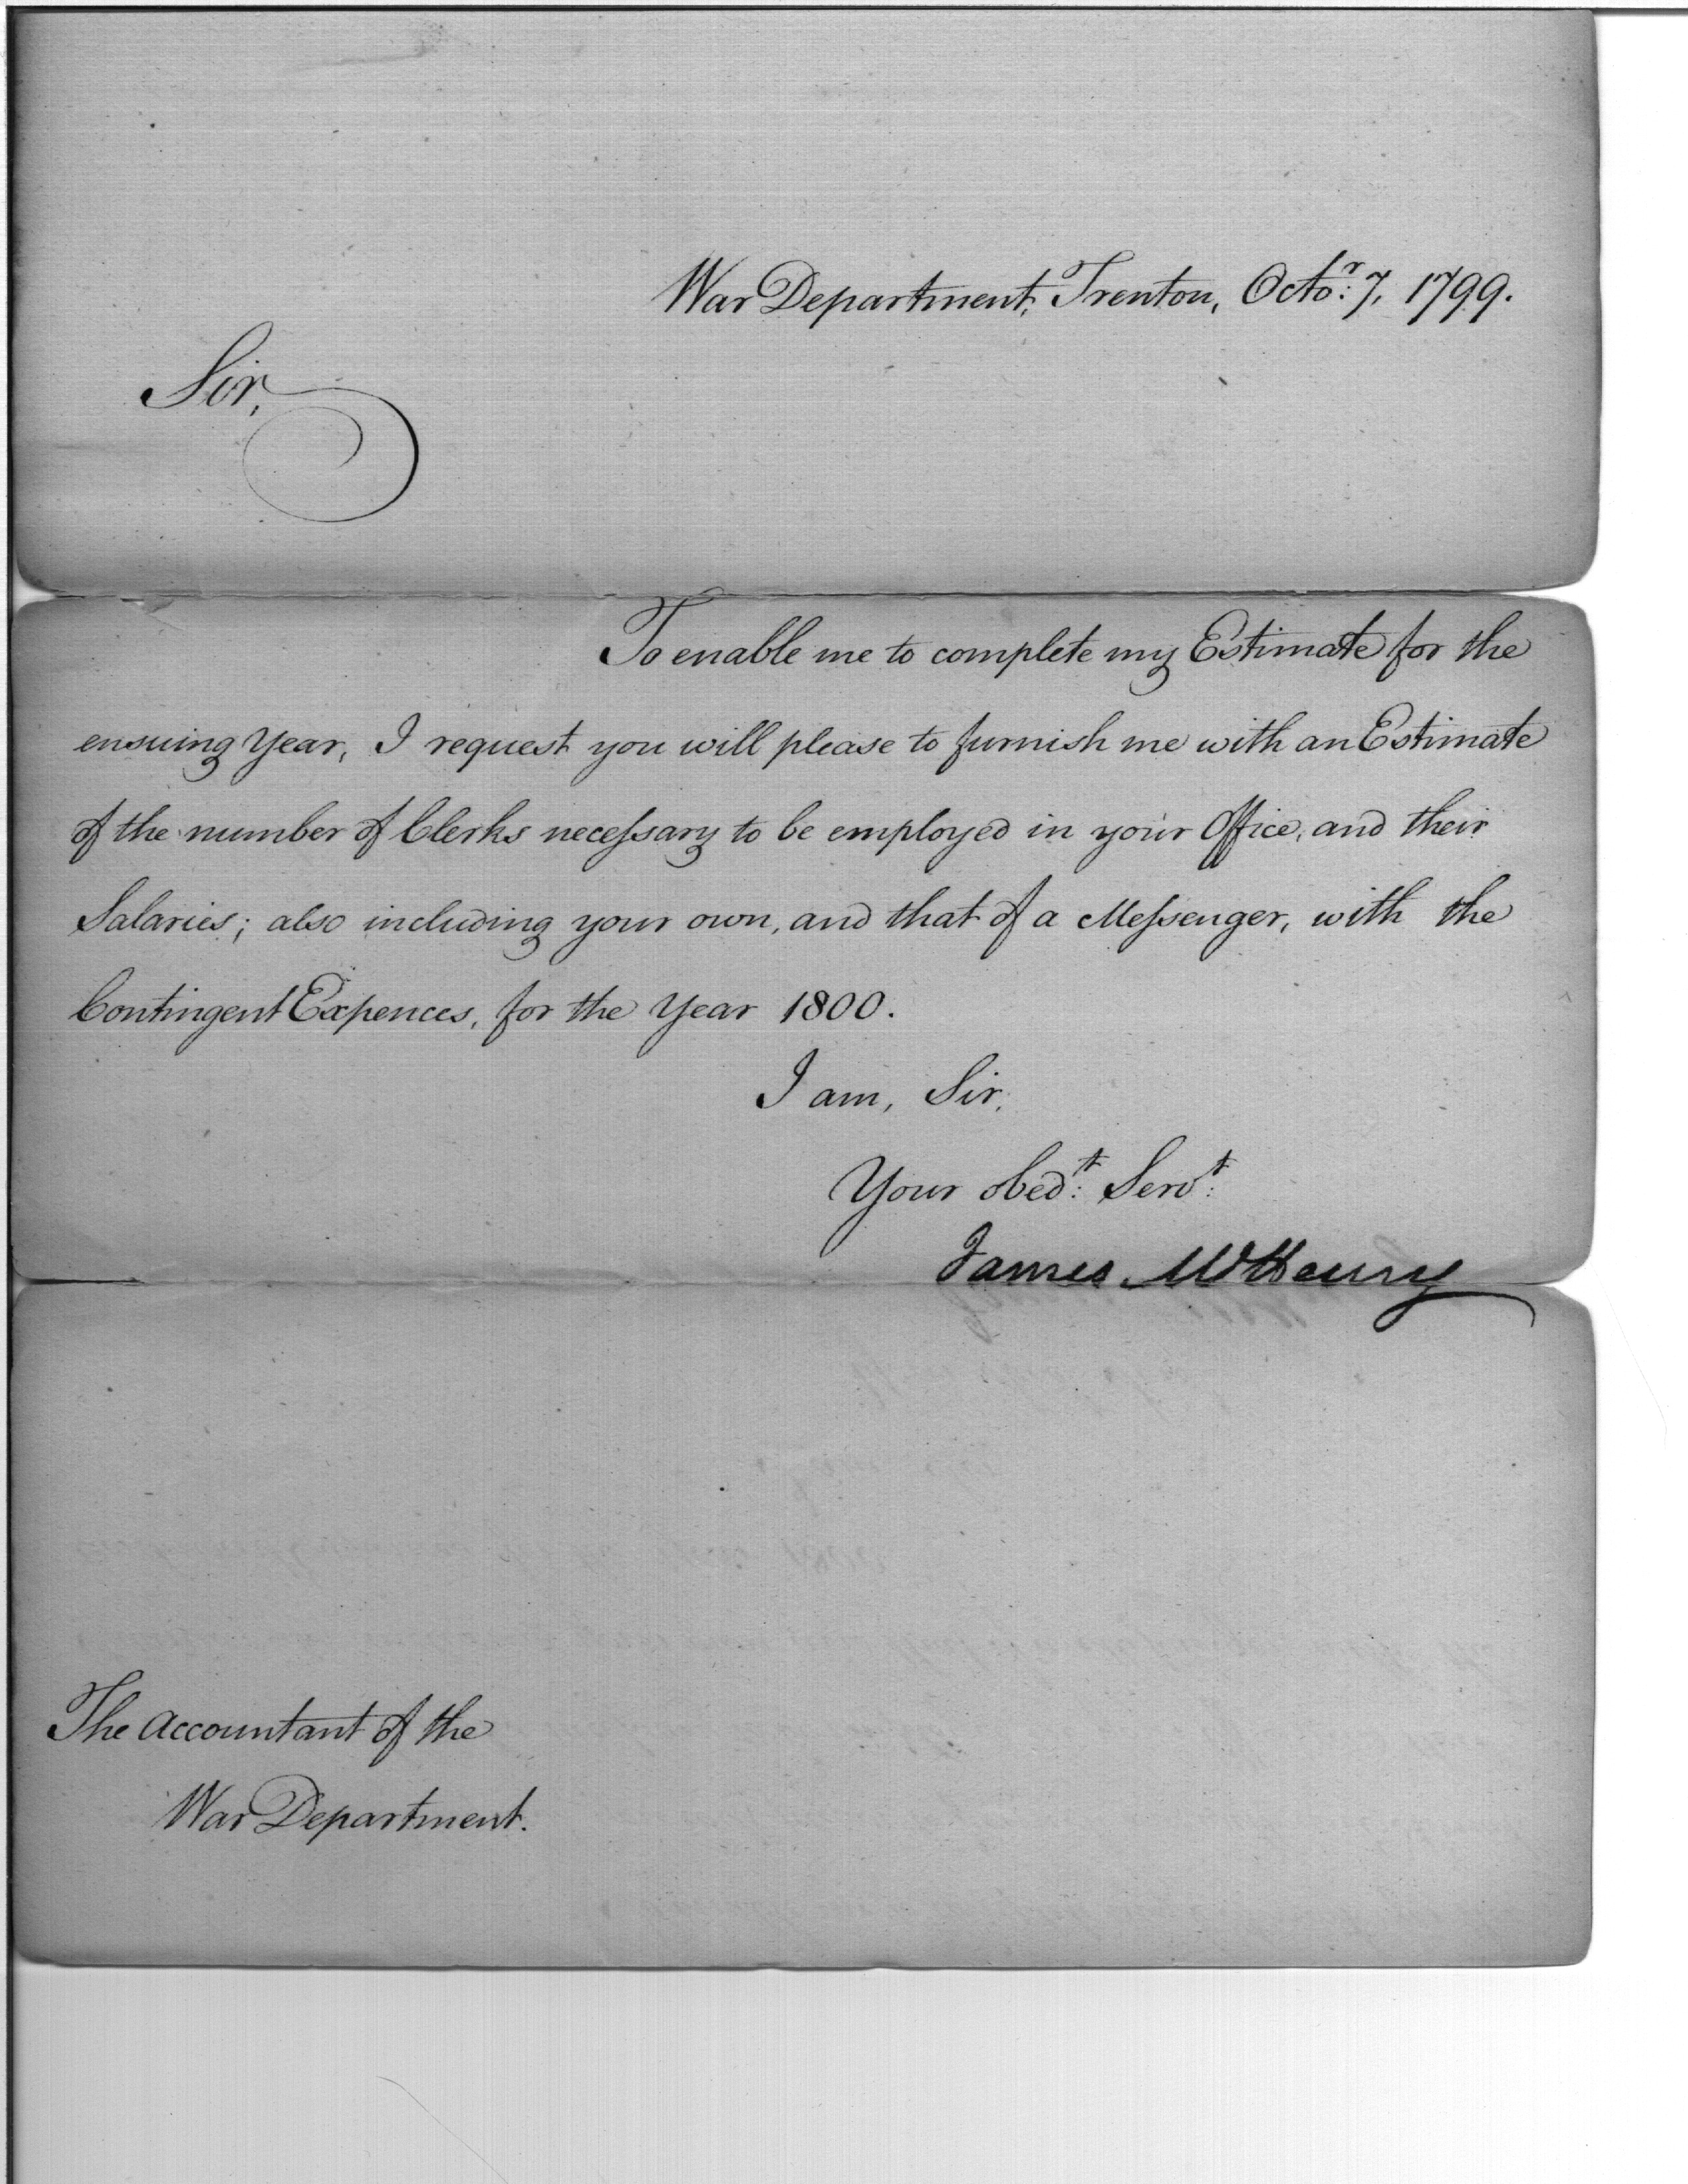 War Department, Trenton, Octo.r 7, 1799.
Sir,
To enable me to complete my Estimate for the
ensuing Year, I request you will please to furnish me with an Estimate
of the number of Clerks necessary to be employed in your Office, and their
Salaries; also including your own, and that of a Messenger, with the
Contingent Expences, for the Year 1800.
I am, Sir,
Your obed.t Serv.t
James McHenry
The Accountant of the
War Department.